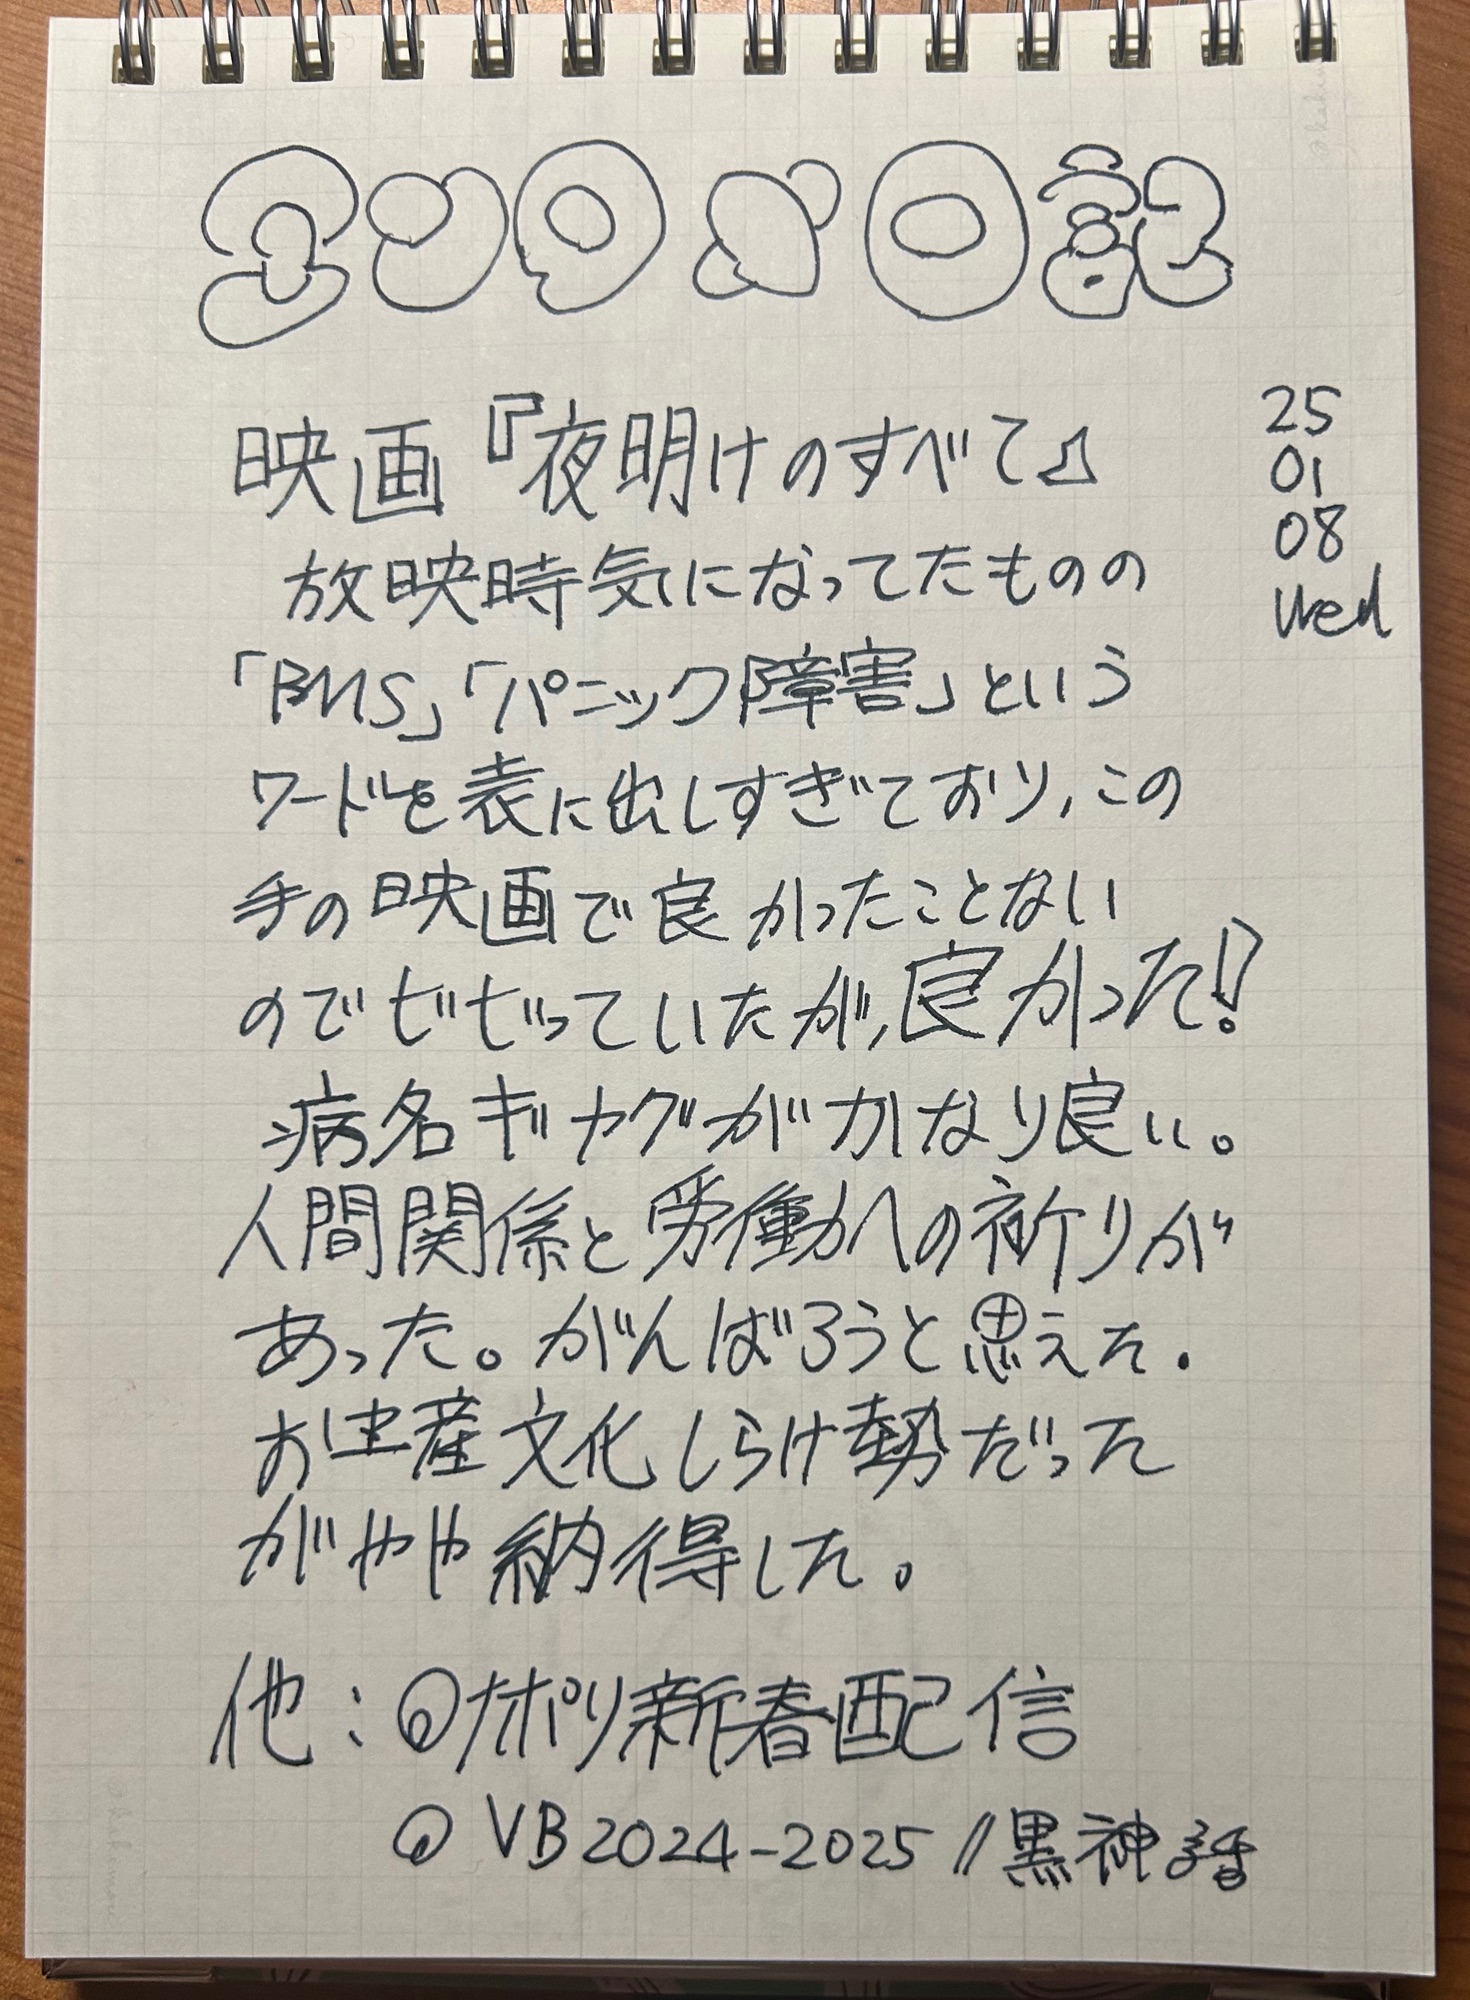 日記
25
01
08
Wed
映画『夜明けのすべて』
放映時気になってたものの
「BMS」「パニック障害」という
ワードを表に出しすぎており、この
手の映画で良かったことない
のでビビっていたが、良かった!
病名ギャグがかなり良い。
人間関係と労働への祈りが
あった。がんばろうと思えた。
お土産文化しらけ勢だった
がやや納得した。
他：ナポリ新春配信
VB2024-2025//黒神話